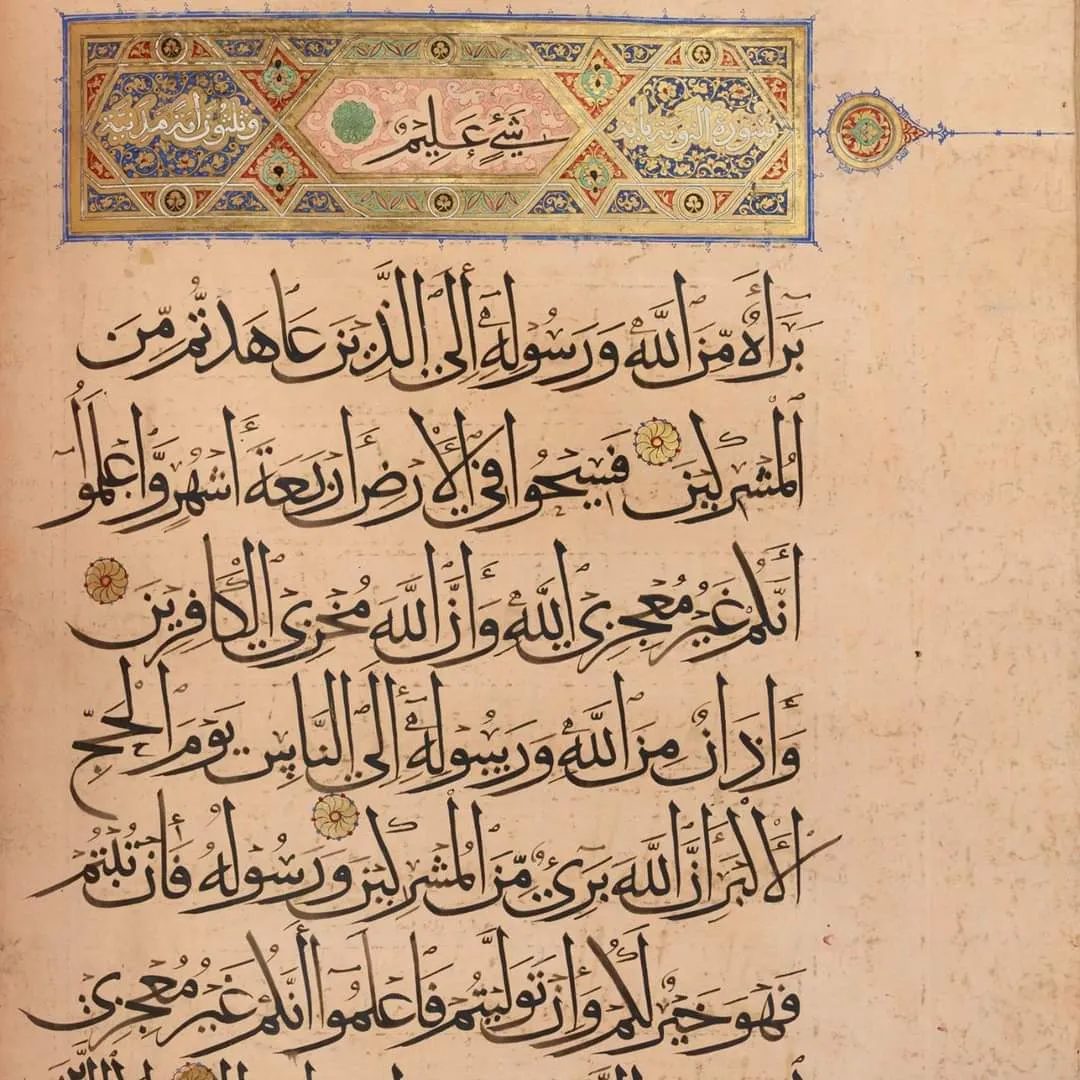 سُورَة التوبة مائة شَيْءٍ عَلِيمٌ وثلثون آية مدنية
بَرَآءَةٌ مِّنَ اللَّهِ وَرَسُولِهِ إِلَى الَّذِينَ عَاهَدتُّم مِّنَ
الْمُشْرِكِينَ فَسِيحُوا فِي الْأَرْضِ أَرْبَعَةَ أَشْهُرٍ وَّاعْلَمُوا
أَنَّكُمْ غَيْرُ مُعْجِزِي اللَّهِ وَأَنَّ اللَّهَ مُخْزِي الْكَافِرِينَ
وَأَذَانٌ مِنَ اللَّهِ وَرَسُولِهِ إِلَى النَّاسِ يَوْمَ الْحَجِّ
الْأَكْبَرِ أَنَّ اللَّهَ بَرِيءٌ مِّنَ الْمُشْرِكِينَ وَرَسُولُهُ فَإِنْ تُبْتُمْ
فَهُوَ خَيْرٌ لَكُمْ وَإِنْ تَوَلَّيْتُمْ فَاعْلَمُوا أَنَّكُمْ غَيْرُ مُعْجِزِي